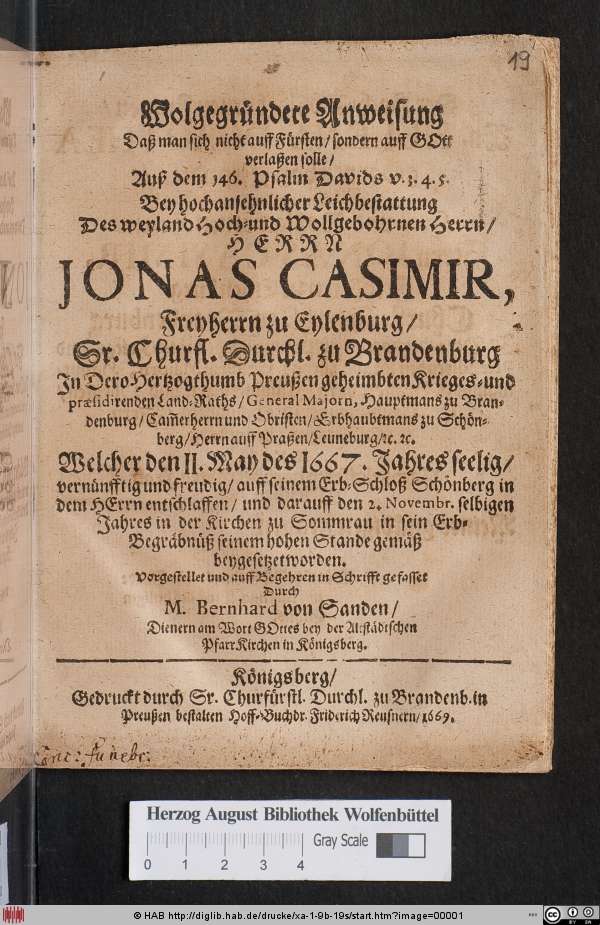 19
Wolgegründete Anweisung
Daß man sich nicht auff Fürsten/ sondern auff GOtt
verlaßen solle/
Auß dem 146. Psalm Davids v. 3. 4. 5.
Bey hochansehnlicher Leichbestattung
Des weyland Hoch- und Wollgebohrnen Herrn/
HERRN
JONAS CASIMIR,
Freyherrn zu Eylenburg/
Sr. Churfl. Durchl. zu Brandenburg
In Dero Hertzogthumb Preußen geheimbten Krieges- und
præsidirenden Land-Raths/ General Majorn, Hauptmans zu Bran-
denburg/ Cam̃erherrn und Obristen/ Erbhaubtmans zu Schön-
berg/ Herrn auff Praßen/ Leuneburg/ ꝛc. ꝛc.
Welcher den II. May des 1667. Jahres seelig/
vernünfftig und freudig/ auff seinem Erb-Schloß Schönberg in
dem HErrn entschlaffen/ und darauff den 2. Novembr. selbigen
Jahres in der Kirchen zu Sommrau in sein Erb-
Begräbnüß seinem hohen Stande gemäß
beygesetzet worden.
Vorgestellet und auff Begehren in Schrifft gefasset
Durch
M. Bernhard von Sanden/
Dienern am Wort GOttes bey der Altstädtschen
PfarrKirchen in Königsberg.
Königsberg/
Gedruckt durch Sr. Churfürstl. Durchl. zu Brandenb. in
Preußen bestalten Hoff-Buchdr. Friderich Reusnern/ 1669.
Conc: funebr:
Herzog August Bibliothek Wolfenbüttel
Gray Scale
0 1 2 3 4
© HAB http://diglib.hab.de/drucke/xa-1-9b-19s/start.htm?image=00001
CC BY SA